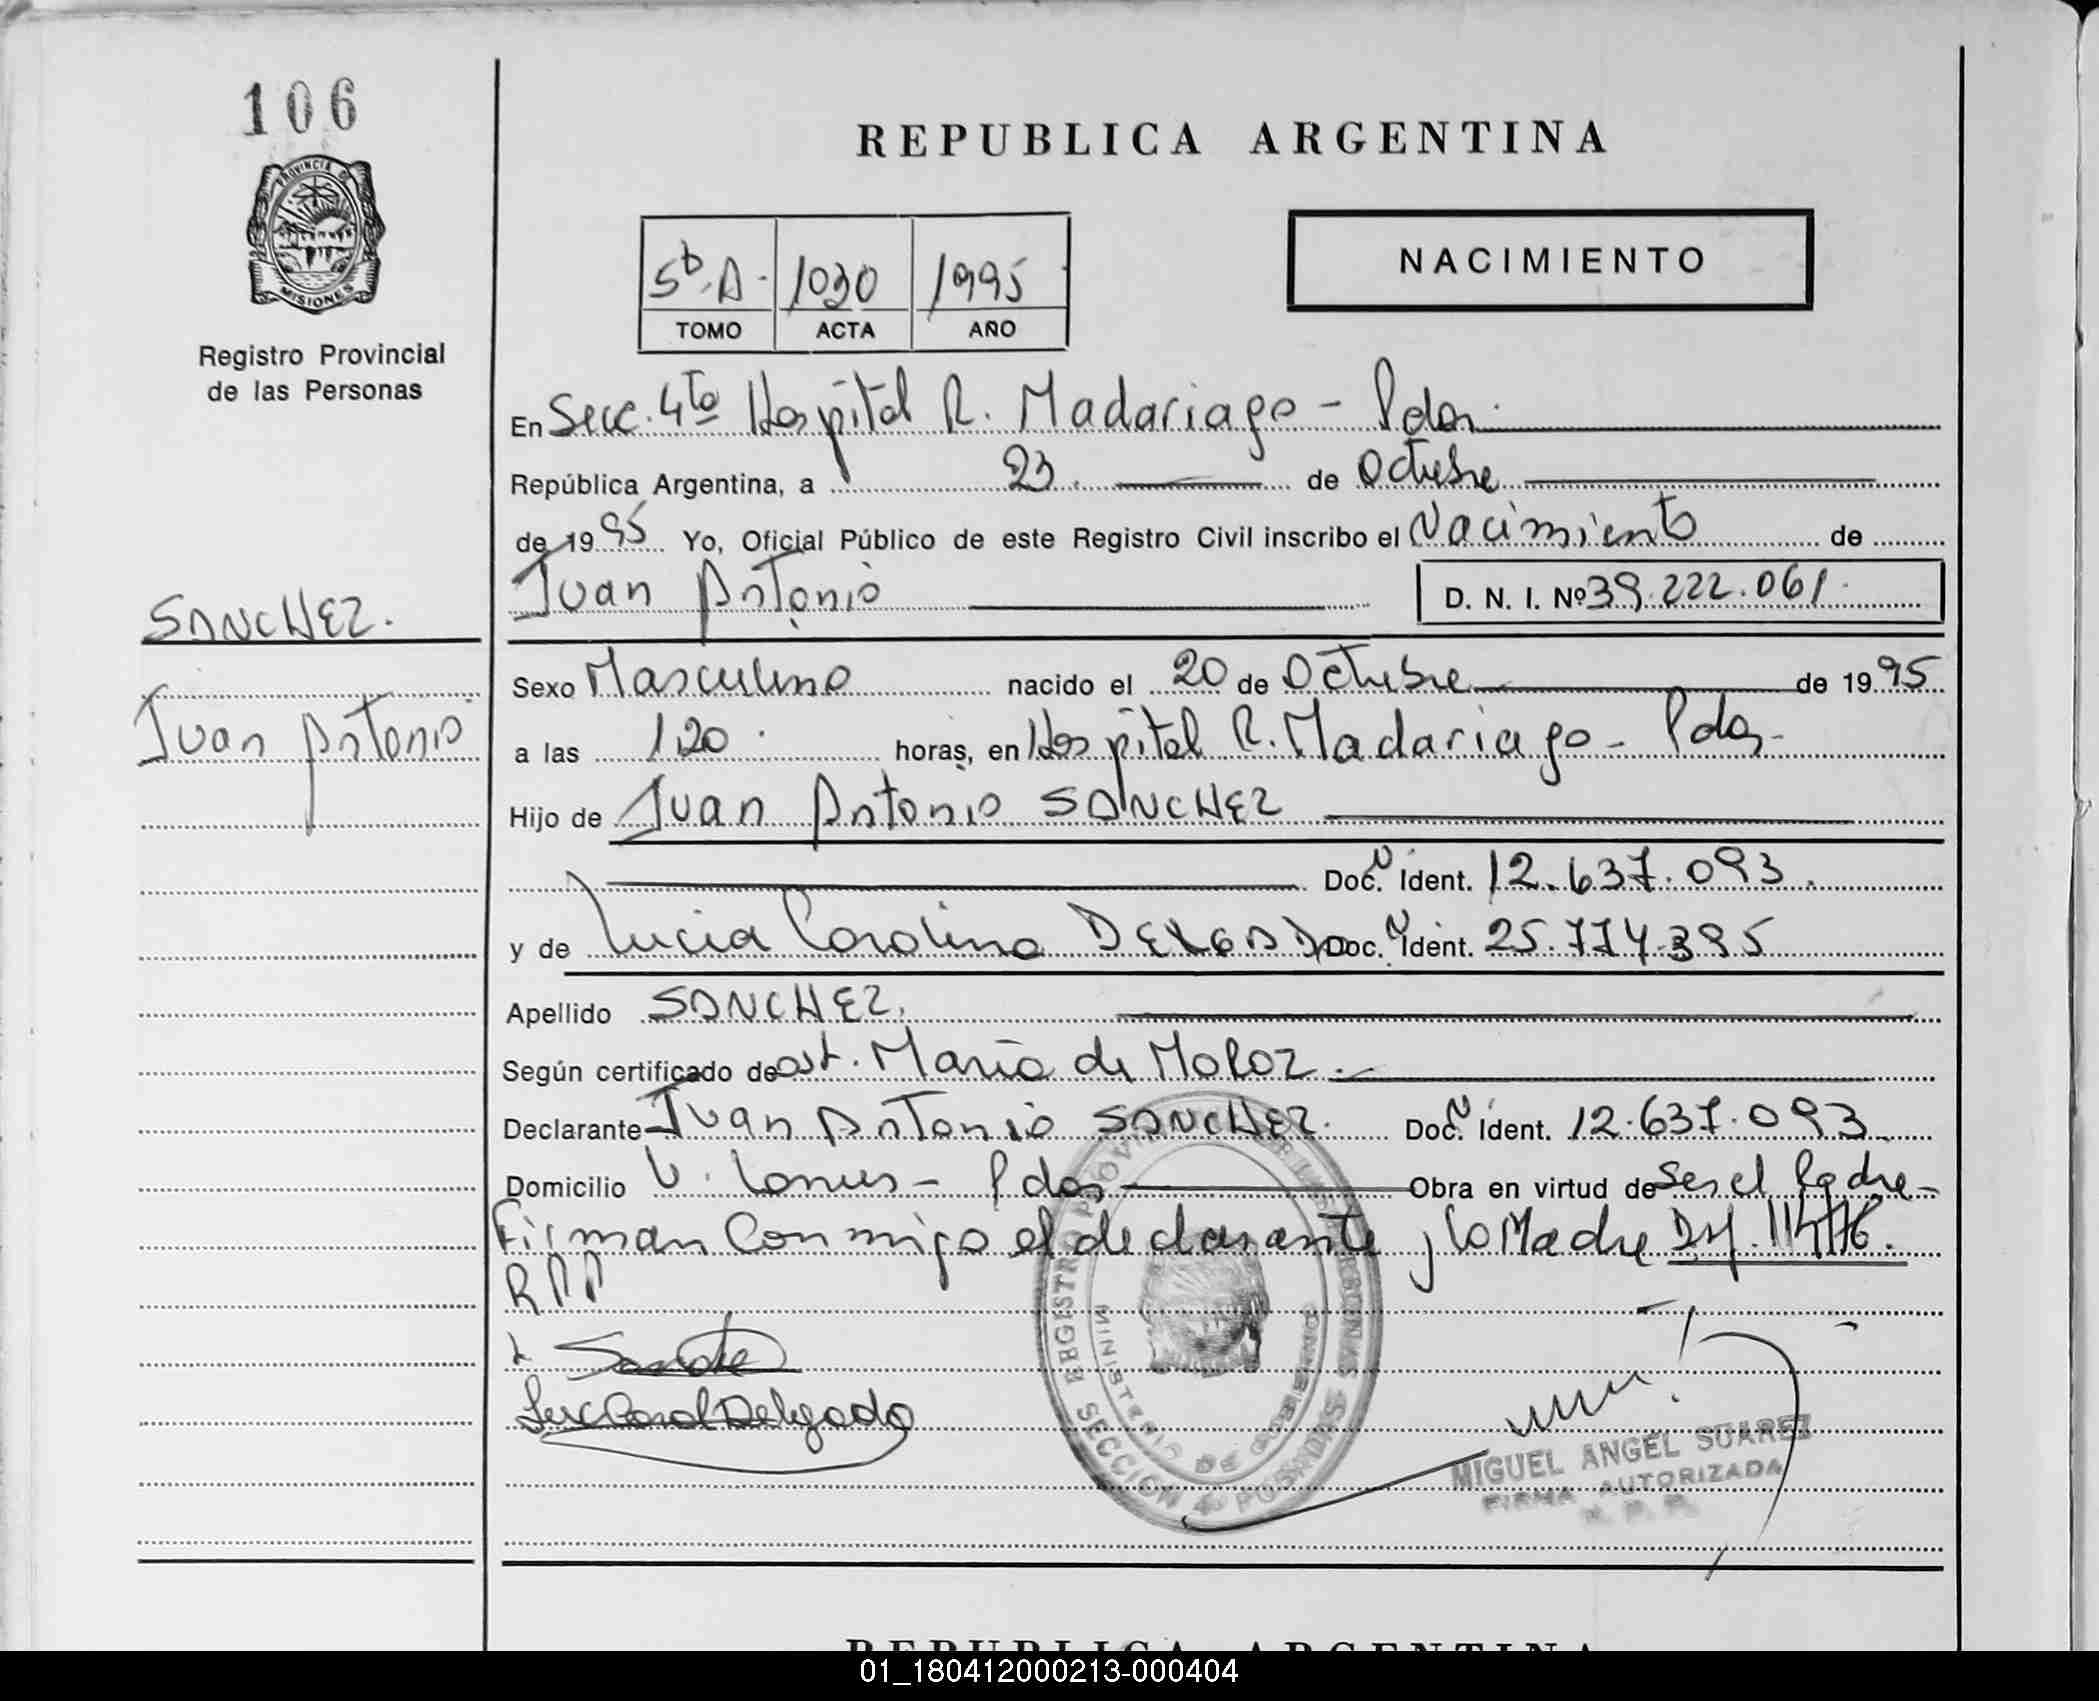 106
PROVINCIA DE
MISIONES
Registro Provincial
de las Personas
REPUBLICA ARGENTINA
NACIMIENTO
5to A. 1030 1995
TOMO ACTA AÑO
En Secc. 4ta Hospital R. Madariaga - Pdas.
República Argentina, a 23 de Octubre
de 1995 Yo, Oficial Público de este Registro Civil inscribo el Nacimiento de
Juan Antonio D. N. I. Nº 39.222.061
SANCHEZ.
Juan Antonio
Sexo Masculino nacido el 20 de Octubre de 1995
a las 1,20 horas, en Hospital R. Madariaga - Pdas-
Hijo de Juan Antonio SANCHEZ
Doc. N Ident. 12.637.093.
y de Lucia Carolina DELGADO Doc. N Ident. 25.774.395
Apellido SANCHEZ.
Según certificado de ost. Maria de Moloz.
Declarante Juan Antonio SANCHEZ. Doc. N Ident. 12.637.093
Domicilio V. Lanus - Pdas Obra en virtud de ser el Padre-
Firman Conmigo el declarante y la Madre
Sanche
Luc Carol Delgado
REGISTRO PROVINCIAL DE LAS PERSONAS
MINISTERIO DE GOBIERNO
SECCION 4a POSADAS
MIGUEL ANGEL SUAREZ
FIRMA AUTORIZADA
R. P. P.
REPUBLICA ARGENTINA
01_180412000213-000404